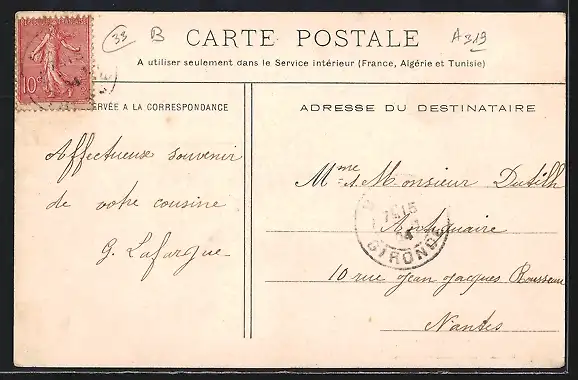 33
B
CARTE POSTALE
A 319
A utiliser seulement dans le Service intérieur (France, Algérie et Tunisie)
10
RVÉE A LA CORRESPONDANCE
ADRESSE DU DESTINATAIRE
Affectueux souvenir
de votre cousine
G. Lafargue
Mme et Monsieur Dutilh
Antiquaire
10 rue Jean Jacques Rousseau
Nantes
GIRONDE